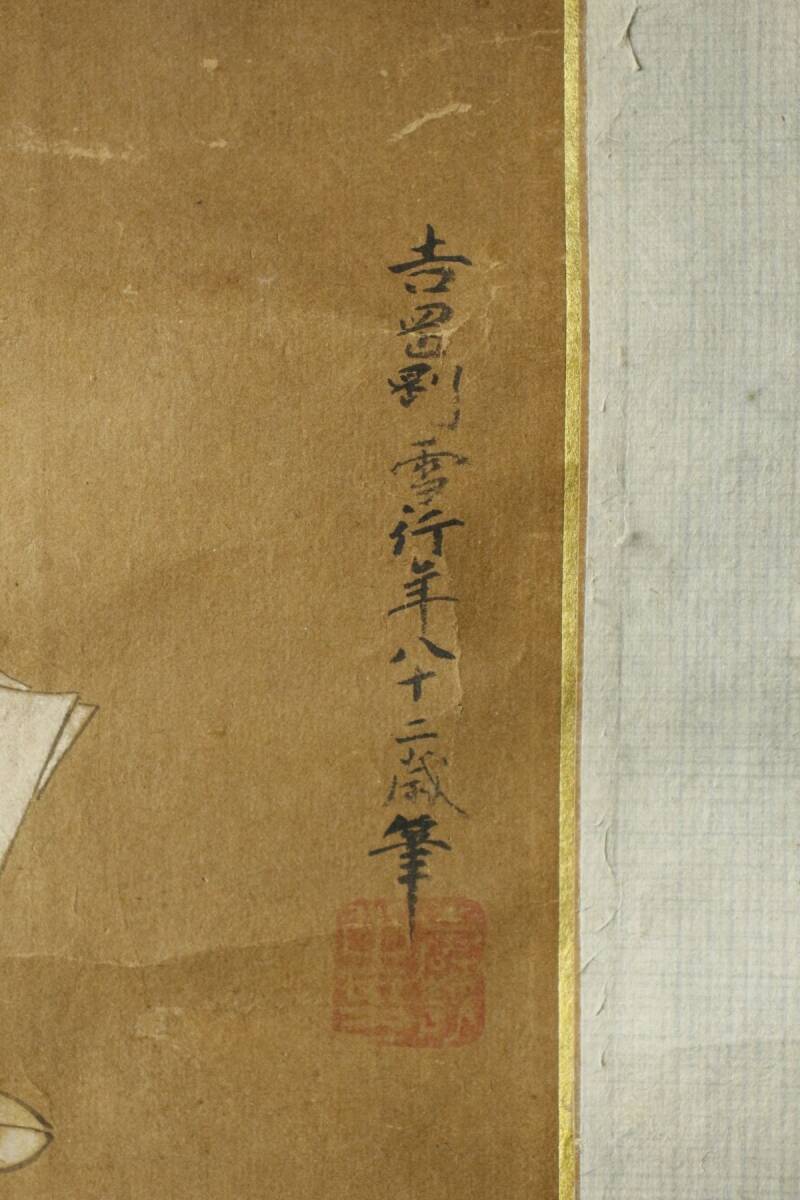 吉罡剛雪行年八十二歳筆